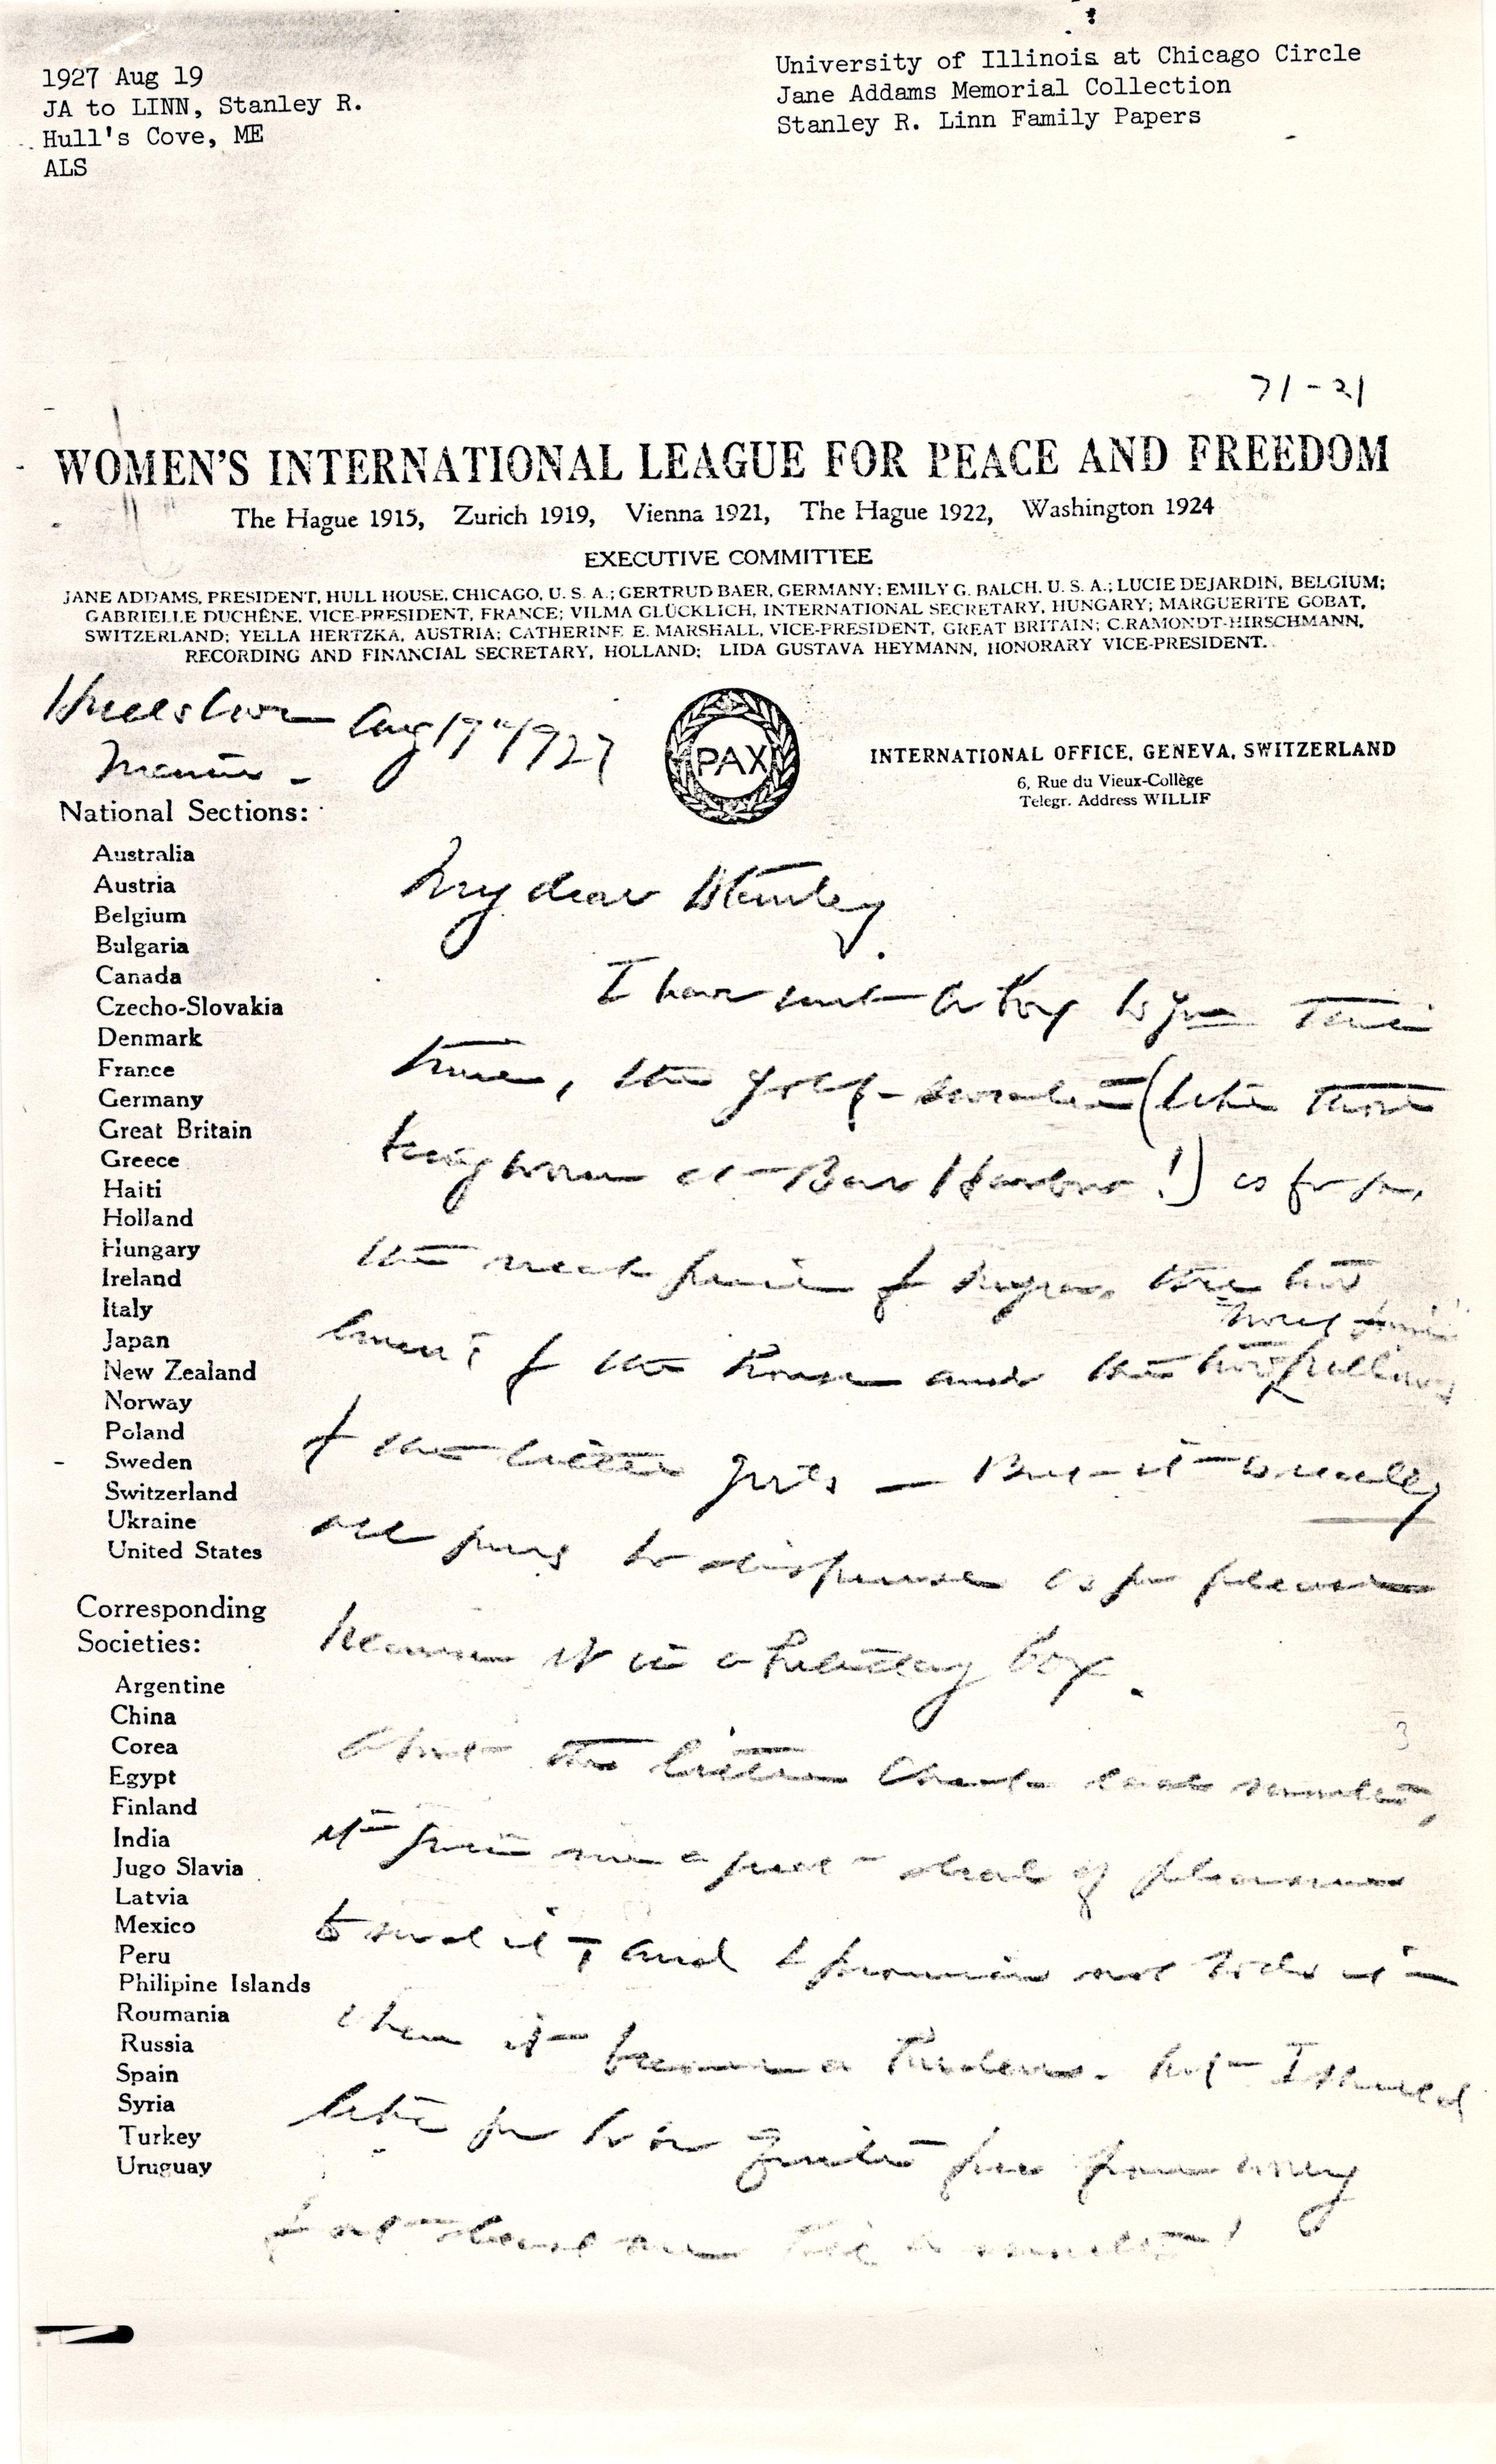 1927 Aug 19
JA to LINN, Stanley R.
Hull's Cove, ME
ALS
University of Illinois at Chicago Circle
Jane Addams Memorial Collection
Stanley R. Linn Family Papers
71-21
WOMEN'S INTERNATIONAL LEAGUE FOR PEACE AND FREEDOM
The Hague 1915, Zurich 1919, Vienna 1921, The Hague 1922, Washington 1924
EXECUTIVE COMMITTEE
JANE ADDAMS, PRESIDENT, HULL HOUSE, CHICAGO, U. S. A.; GERTRUD BAER, GERMANY; EMILY G. BALCH, U. S. A.; LUCIE DEJARDIN, BELGIUM;
GABRIELLE DUCHÊNE, VICE-PRESIDENT, FRANCE; VILMA GLÜCKLICH, INTERNATIONAL SECRETARY, HUNGARY; MARGUERITE GOBAT,
SWITZERLAND; YELLA HERTZKA, AUSTRIA; CATHERINE E. MARSHALL, VICE-PRESIDENT, GREAT BRITAIN; C.RAMONDT-HIRSCHMANN,
RECORDING AND FINANCIAL SECRETARY, HOLLAND; LIDA GUSTAVA HEYMANN, HONORARY VICE-PRESIDENT.
Hulls Cove Aug 19" 1927
Maine -
PAX
INTERNATIONAL OFFICE, GENEVA, SWITZERLAND
6, Rue du Vieux-Collège
Telegr. Address WILLIF
National Sections:
Australia
Austria
Belgium
Bulgaria
Canada
Czecho-Slovakia
Denmark
France
Germany
Great Britain
Greece
Haiti
Holland
Hungary
Ireland
Italy
Japan
New Zealand
Norway
Poland
Sweden
Switzerland
Ukraine
United States
Corresponding
Societies:
Argentine
China
Corea
Egypt
Finland
India
Jugo Slavia
Latvia
Mexico
Peru
Philipine Islands
Roumania
Russia
Spain
Syria
Turkey
Uruguay
My dear Stanley
I have sent a box to you this
time, the golf-sweater (like those
being worn at Bar Harbor!) is for you,
the neck piece for Myra, the two
of the house and the two
of the little girls — But it is really
all yours to dispense as you please
because it is a birthday box.
About the little check
it gives me a great deal of pleasure
to send it, and I promise not to do it
when it becomes a burden. but I should
like you to be quite free from